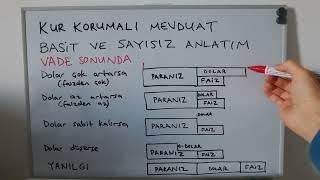 KUR KORUMALI MEVDUAT
BASİT VE SAYISIZ ANLATIM
VADE SONUNDA
Dolar çok artarsa
(faizden çok)
PARANIZ
DOLAR
FAİZ
Dolar az artarsa
(faizden az)
PARANIZ
DOLAR
FAİZ
Dolar sabit kalırsa
PARANIZ
DOLAR
FAİZ
Dolar düşerse
PARANIZ
-DOLAR
FAİZ
YANILGI
PARANIZ
DOLAR
FAİZ